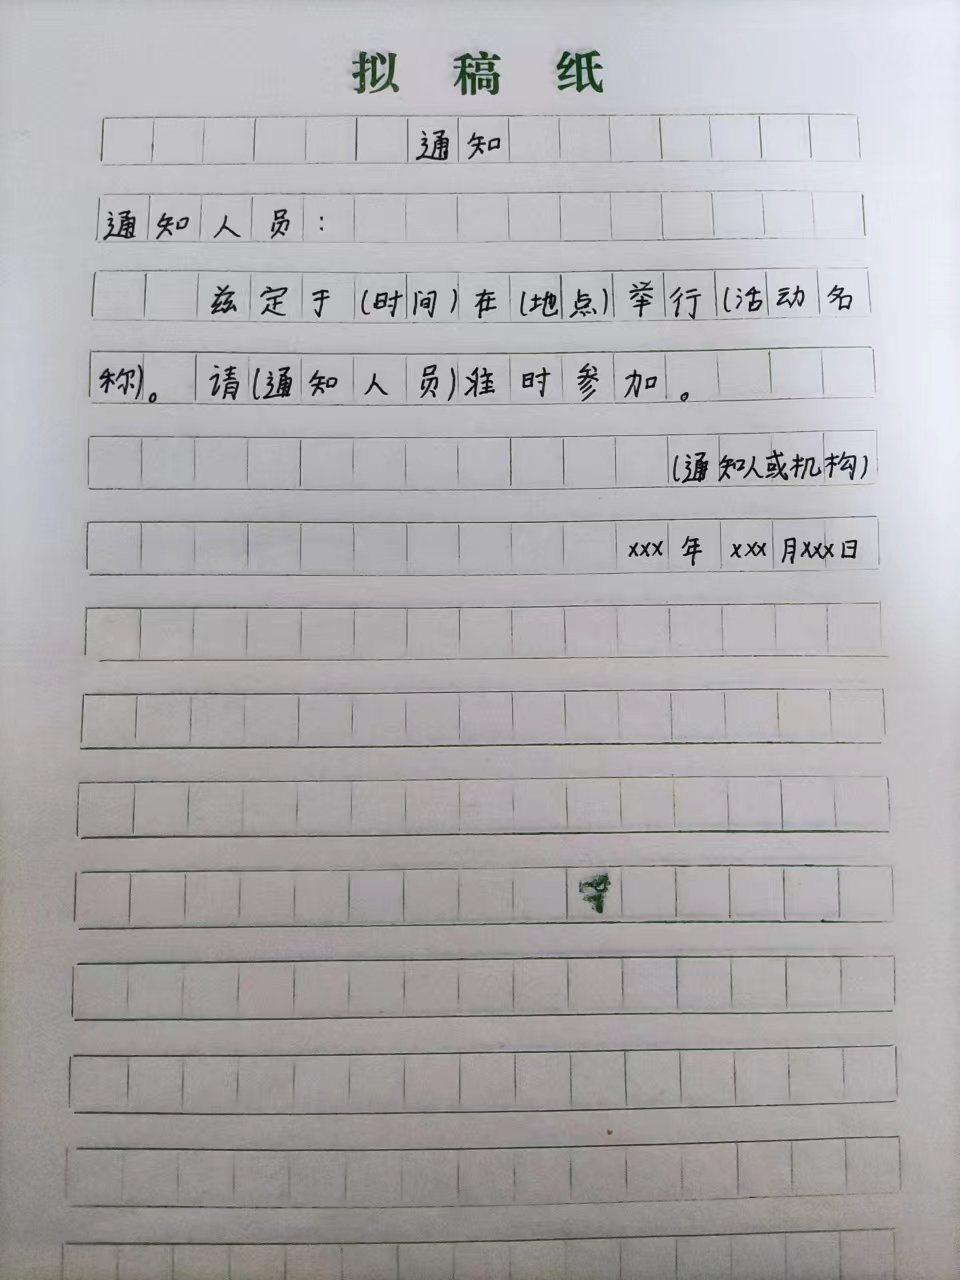 拟稿纸
通知
通知人员：
兹定于(时间)在(地点)举行(活动名
称)。请(通知人员)准时参加。
(通知人或机构)
xxx年xxx月xxx日